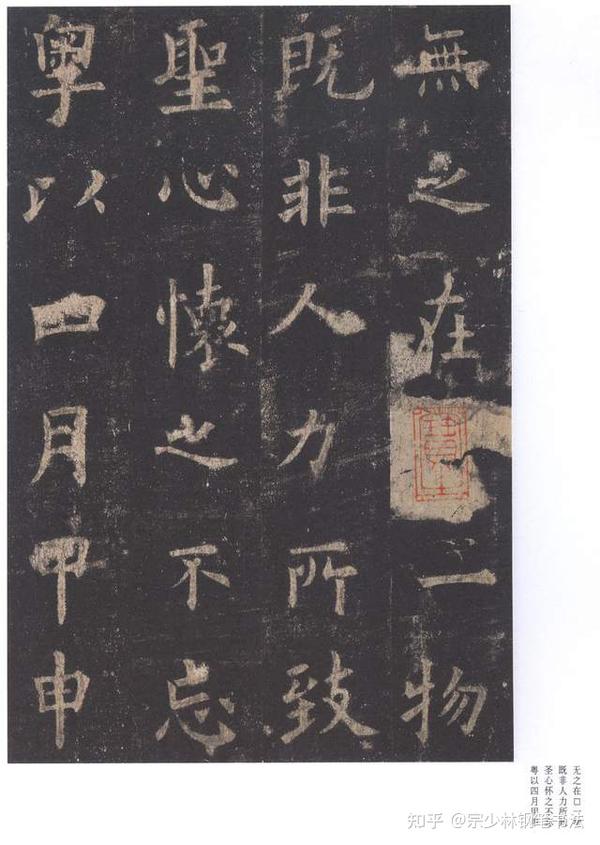 無之在一物
既非人力所致
聖心懷之不忘
粵以四月甲申
无之在口一
既非人力所
圣心怀之不
粤以四月甲
知乎 @宗少林钢笔书法